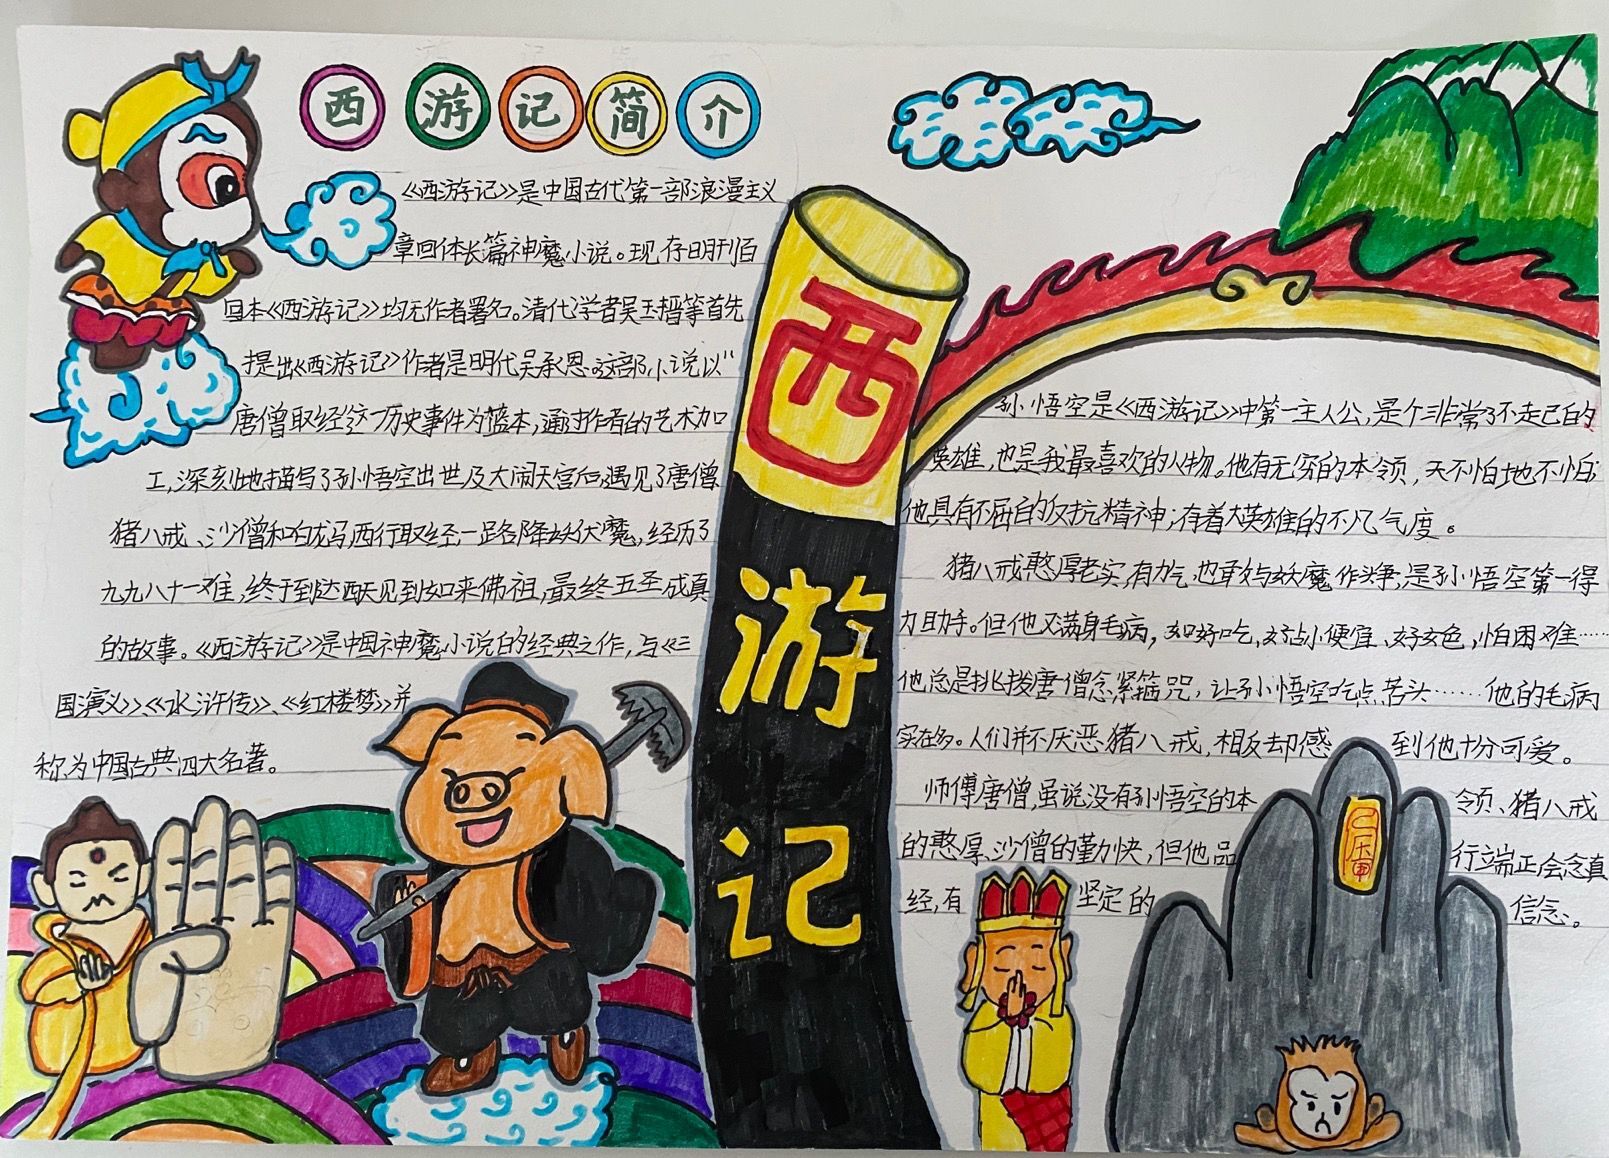 西游记简介
《西游记》是中国古代第一部浪漫主义
章回体长篇神魔小说。现存明刊百
回本《西游记》均无作者署名。清代学者吴玉搢等首先
提出《西游记》作者是明代吴承恩。这部小说以"
唐僧取经"这一历史事件为蓝本,通过作者的艺术加
工,深刻地描写了孙悟空出世及大闹天宫后,遇见了唐僧
猪八戒、沙僧和白龙马,西行取经,一路各降妖伏魔,经历了
九九八十一难,终于到达西天见到如来佛祖,最终五圣成真
的故事。《西游记》是中国神魔小说的经典之作,与《三
国演义》《水浒传》、《红楼梦》并
称为中国古典四大名著。
西游记
孙悟空是《西游记》中第一主人公,是个非常了不起的
英雄,也是我最喜欢的人物。他有无穷的本领,天不怕地不怕;
他具有不屈的反抗精神;有着大英雄的不凡气度。
猪八戒憨厚老实,有力气,也敢与妖魔作斗争;是孙悟空第一得
力助手。但他又满身毛病,如好吃,好占小便宜、好女色,怕困难……
他总是挑拨唐僧念紧箍咒,让孙小悟空吃点苦头……他的毛病
实在多。人们并不厌恶猪八戒,相反却感到他十分可爱。
师傅唐僧,虽说没有孙悟空的本领、猪八戒
的憨厚、沙僧的勤快,但他品行端正会念真
经,有坚定的信念。